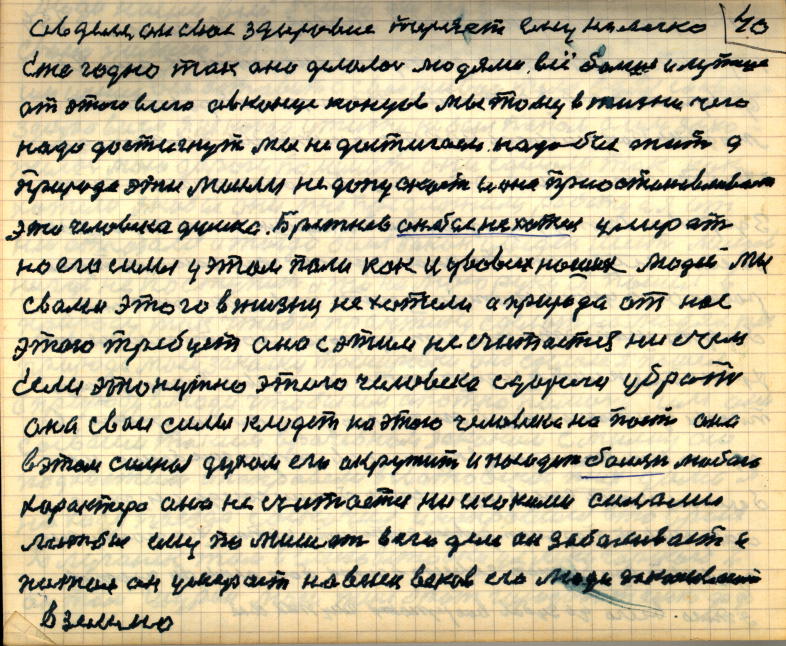 свое здоровье теряет ему не легко 40
Ежегодно так оно делалось людями. всё больше и
от этого всего а в конце концов мы тому в жизни чего
надо достигнут мы не достигаем надо бы жить а
природа эти мысли не допускает и она приостанавливает
это человека думка. Брежнев он бы не хотел умерать
но его силы у этом пали как и у всех наших людей мы
свами этого в жизни не хотели а природа от нас
этого требует она с этим не считается ни с чем
Если это нужно этого человека с дороги убрать
она свои силы кладет на этого человека на пост она
в этом силный духом его окружит и посадит болян любого
характера она не считается ни с какими силами
лиш бы ему помешат в его деле он заболивает а
потом он умерает на веки веков его люди закоповают
в землю